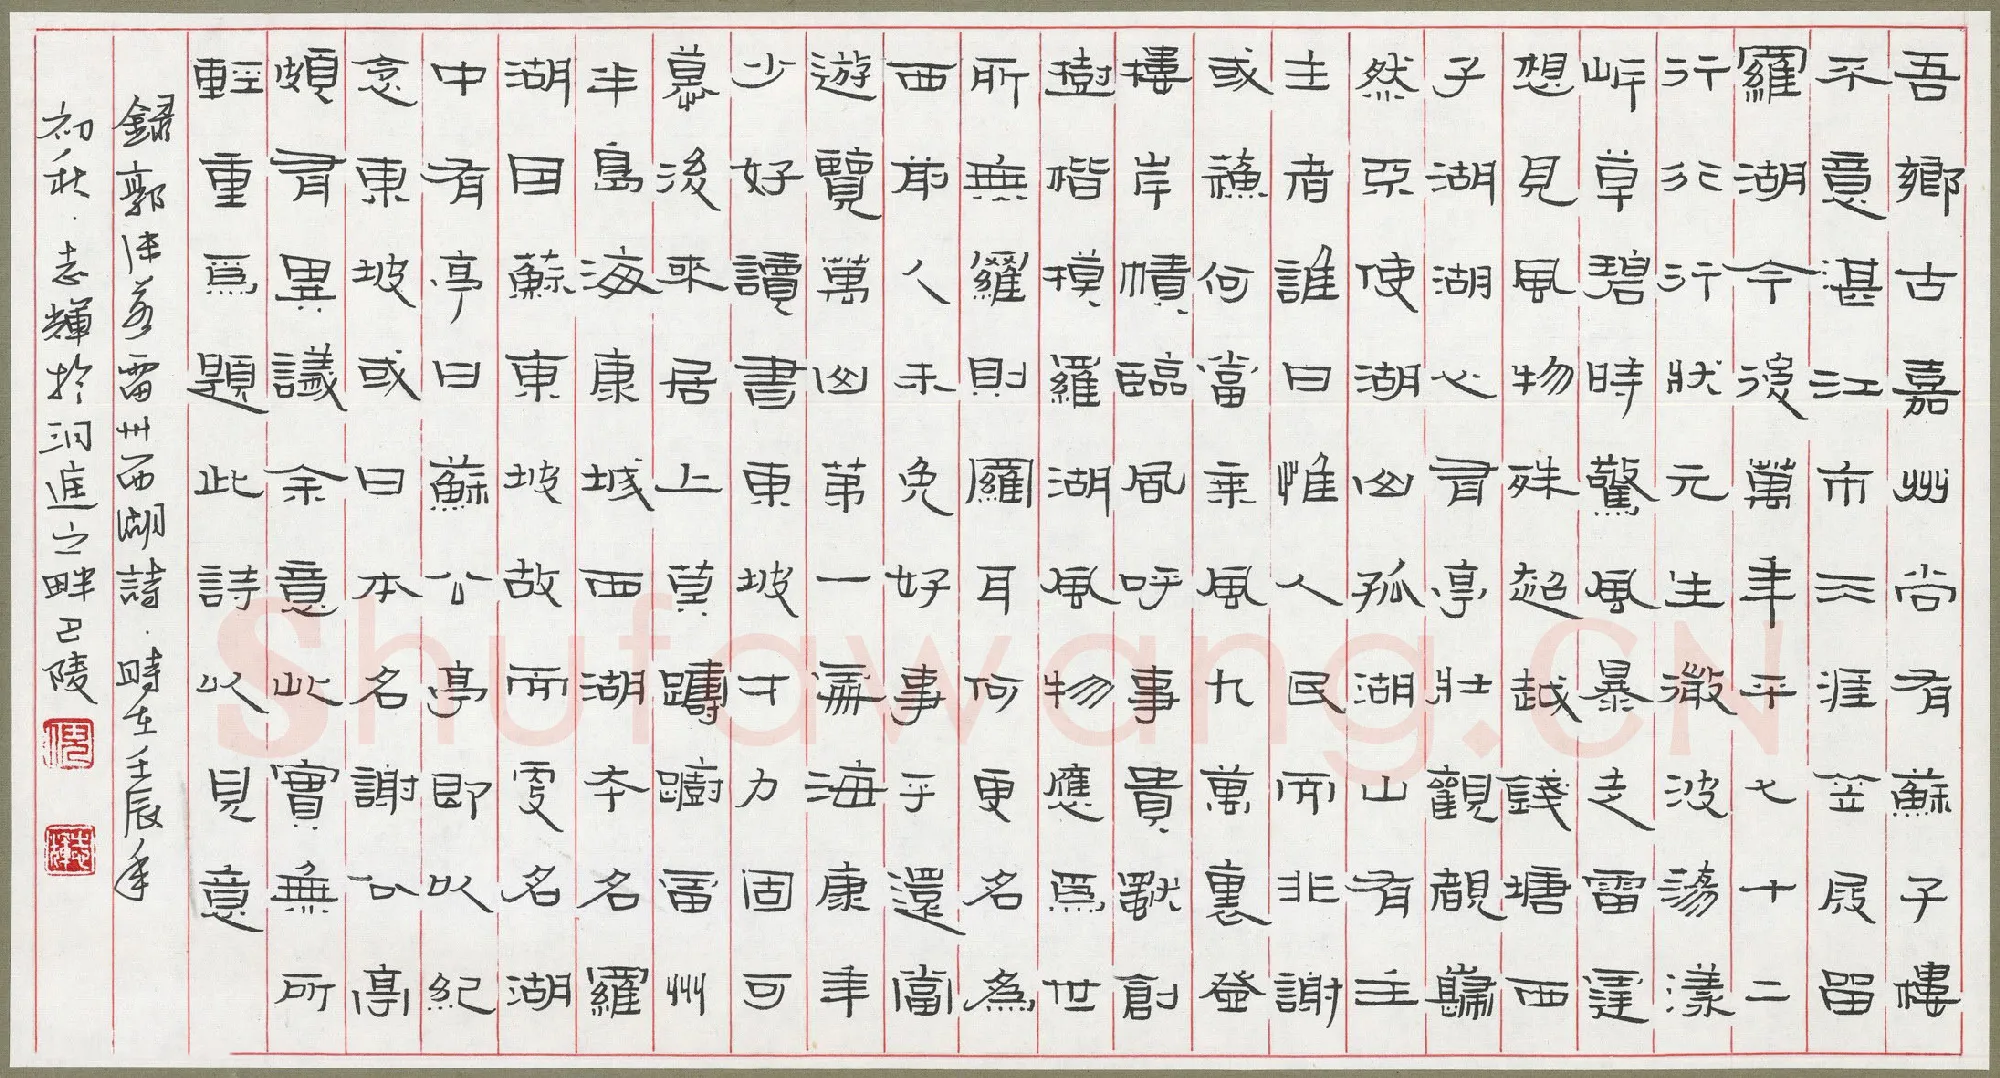 吾鄉古嘉州尚有蘇子樓
不意湛江市三涯笠屐留
羅湖今後萬年平七十二
行行行狀元生瀲波蕩漾
岍草碧時驚風暴走雷霆
想見風物殊超越錢塘西
子湖湖心有亭壯觀覩巋
然亞使湖山孤湖山有主
主者誰曰惟人民而非謝
或蘓何當乘風九萬裏登
樓岸幘臨風呼事貴獸創
樹楷模羅湖風物應爲世
所無羅則羅耳何更名為
西前人未免好事乎還當
遊覽萬山第一扁海康年
少好讀書東坡才力固可
慕後來居上莫躊躕雷州
半島海康城西湖本名羅
湖因蘇東坡故而更名湖
中有亭曰蘇公亭即以紀
念東坡或曰本名謝公亭
頗有異議余意此實無所
輕重爲題此詩以見意
錄郭沫若雷州西湖詩.時在壬辰年
初秋.志輝於洞庭之畔巴陵
志輝
Shufawang.CN